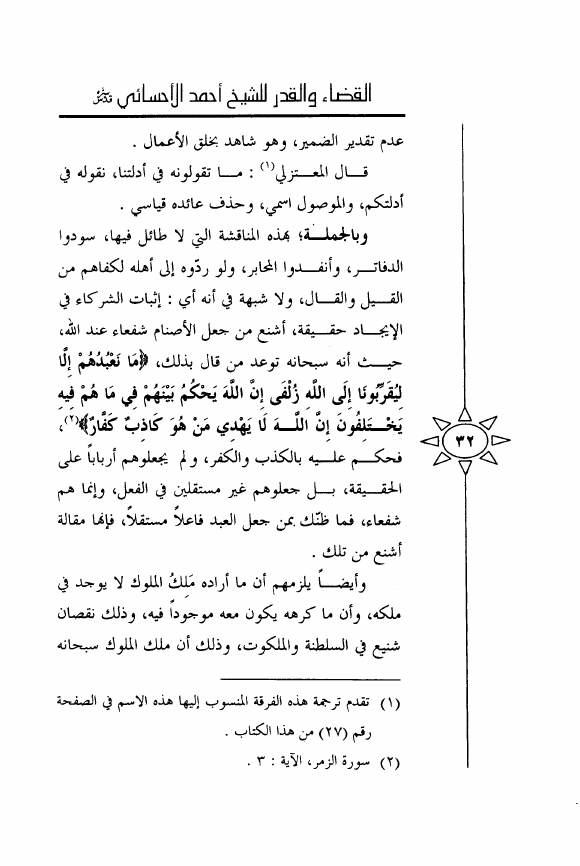 القضاء والقدر للشيخ أحمد الأحسائي
عدم تقدير الضمير، وهو شاهد بخلق الأعمال .
قـال المعـتزلي(١) : مـا تقولونه في أدلتنا، نقوله في
أدلتكم، والموصول اسمي، وحذف عائده قياسي .
وبالجملـة؛ بهذه المناقشة التي لا طائل فيها، سودوا
الدفاتـر، وأنفـدوا المحابر، ولو ردّوه إلى أهله لكفاهم من
القـيل والقـال، ولا شبهة في أنه أي : إثبات الشركاء في
الإيجـاد حقـيقة، أشنع من جعل الأصنام شفعاء عند الله،
حيـث أنه سبحانه توعد من قال بذلك، ﴿مَا نَعْبُدُهُمْ إِلَّا
لِيُقَرِّبُونَا إِلَى اللَّهِ زُلْفَى إِنَّ اللَّهَ يَحْكُمُ بَيْنَهُمْ فِي مَا هُمْ فِيهِ
يَخْـتَلِفُونَ إِنَّ اللَّـهَ لَا يَهْدِي مَنْ هُوَ كَاذِبٌ كَفَّارٌ﴾(٢)،
فحكـم علـيه بالكذب والكفر، ولم يجعلوهم أرباباً على
الحقـيقة، بـل جعلوهم غير مستقلين في الفعل، وإنما هم
شفعاء، فما ظنّك بمن جعل العبد فاعلاً مستقلاً، فإنها مقالة
أشنع من تلك .
وأيضـاً يلزمهم أن ما أراده مَلِكُ الملوك لا يوجد في
ملكه، وأن ما كرهه يكون معه موجوداً فيه، وذلك نقصان
شنيع في السلطنة والملكوت، وذلك أن ملك الملوك سبحانه
٣٢
(١) تقدم ترجمة هذه الفرقة المنسوب إليها هذه الاسم في الصفحة
رقم (٢٧) من هذا الكتاب .
(٢) سورة الزمر، الآية : ٣ .